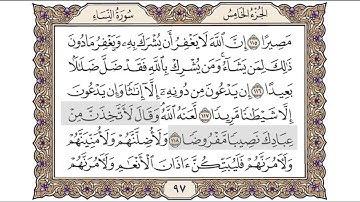 الجزء الخامس سورة النساء
مصيرا ١١٥ إن الله لا يغفر أن يشرك به ويغفر ما دون
ذلك لمن يشاء ومن يشرك بالله فقد ضل ضللا
بعيدا ١١٦ إن يدعون من دونه إلا إنثا وإن يدعون
إلا شيطنا مريدا ١١٧ لعنه الله وقال لأتخذن من
عبادك نصيبا مفروضا ١١٨ ولأضلنهم ولأمنينهم
ولآمرنهم فليبتكن ءاذان الأنعم ولآمرنهم
٩٧